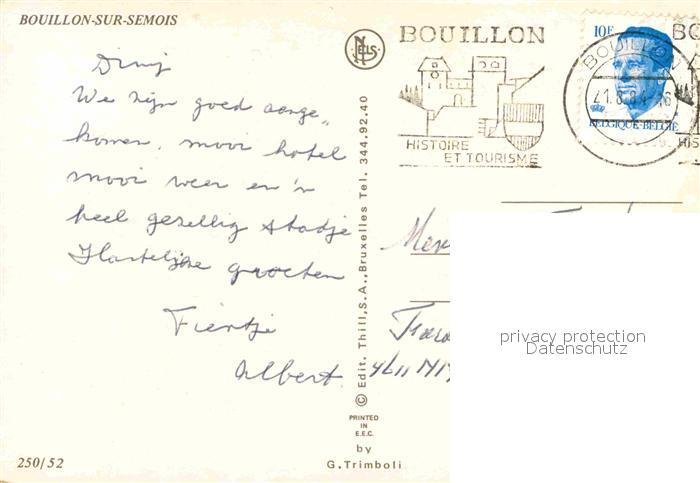 BOUILLON-SUR-SEMOIS
We zijn goed aange„
komen, mooi hotel
mooi weer en 'n
heel gezellig stadje
Hartelijke groeten
Fientje
Albert.
250/52
NELS
© Edit. Thill, S.A., Bruxelles Tel. 344.92.40
PRINTED
IN
E.E.C.
by
G. Trimboli
BOUILLON
HISTOIRE
ET TOURISME
10F
BOUILLON
BELGIQUE-BELGIË
BO
HIS
privacy protection
Datenschutz